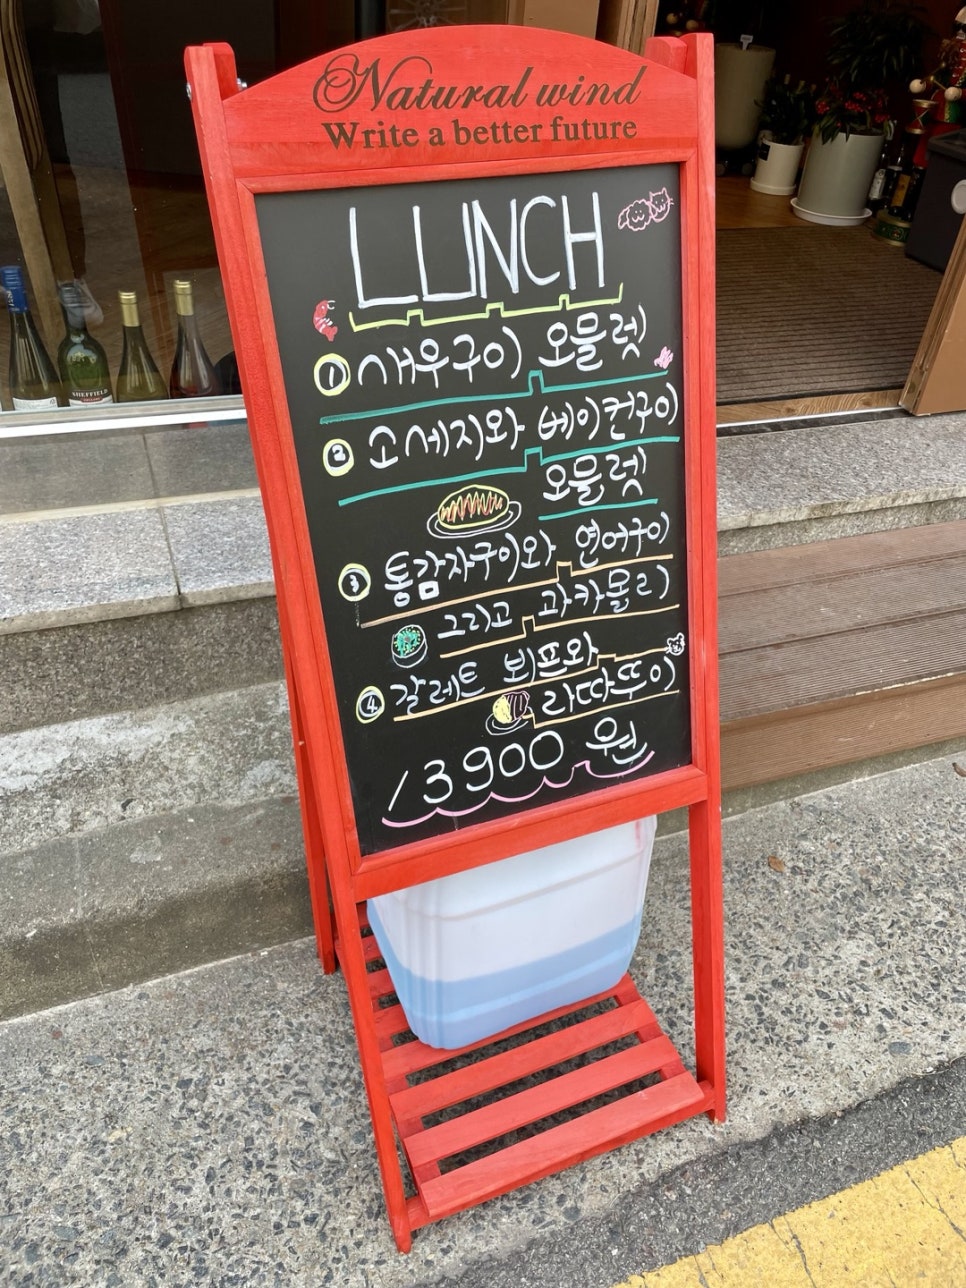 Natural wind
Write a better future
LUNCH
① 새우구이 오믈렛
② 소세지와 베이컨구이
오믈렛
③ 통감자구이와 연어구이
그리고 과카몰리
④ 갈레트 비프와
라따뚜이
13900 원
SHEFFIELD